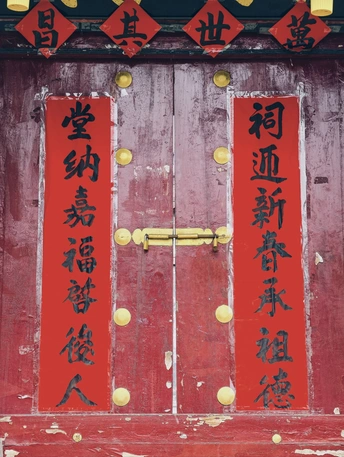 萬世其昌
祠迎新春承祖德
堂納嘉福啓後人